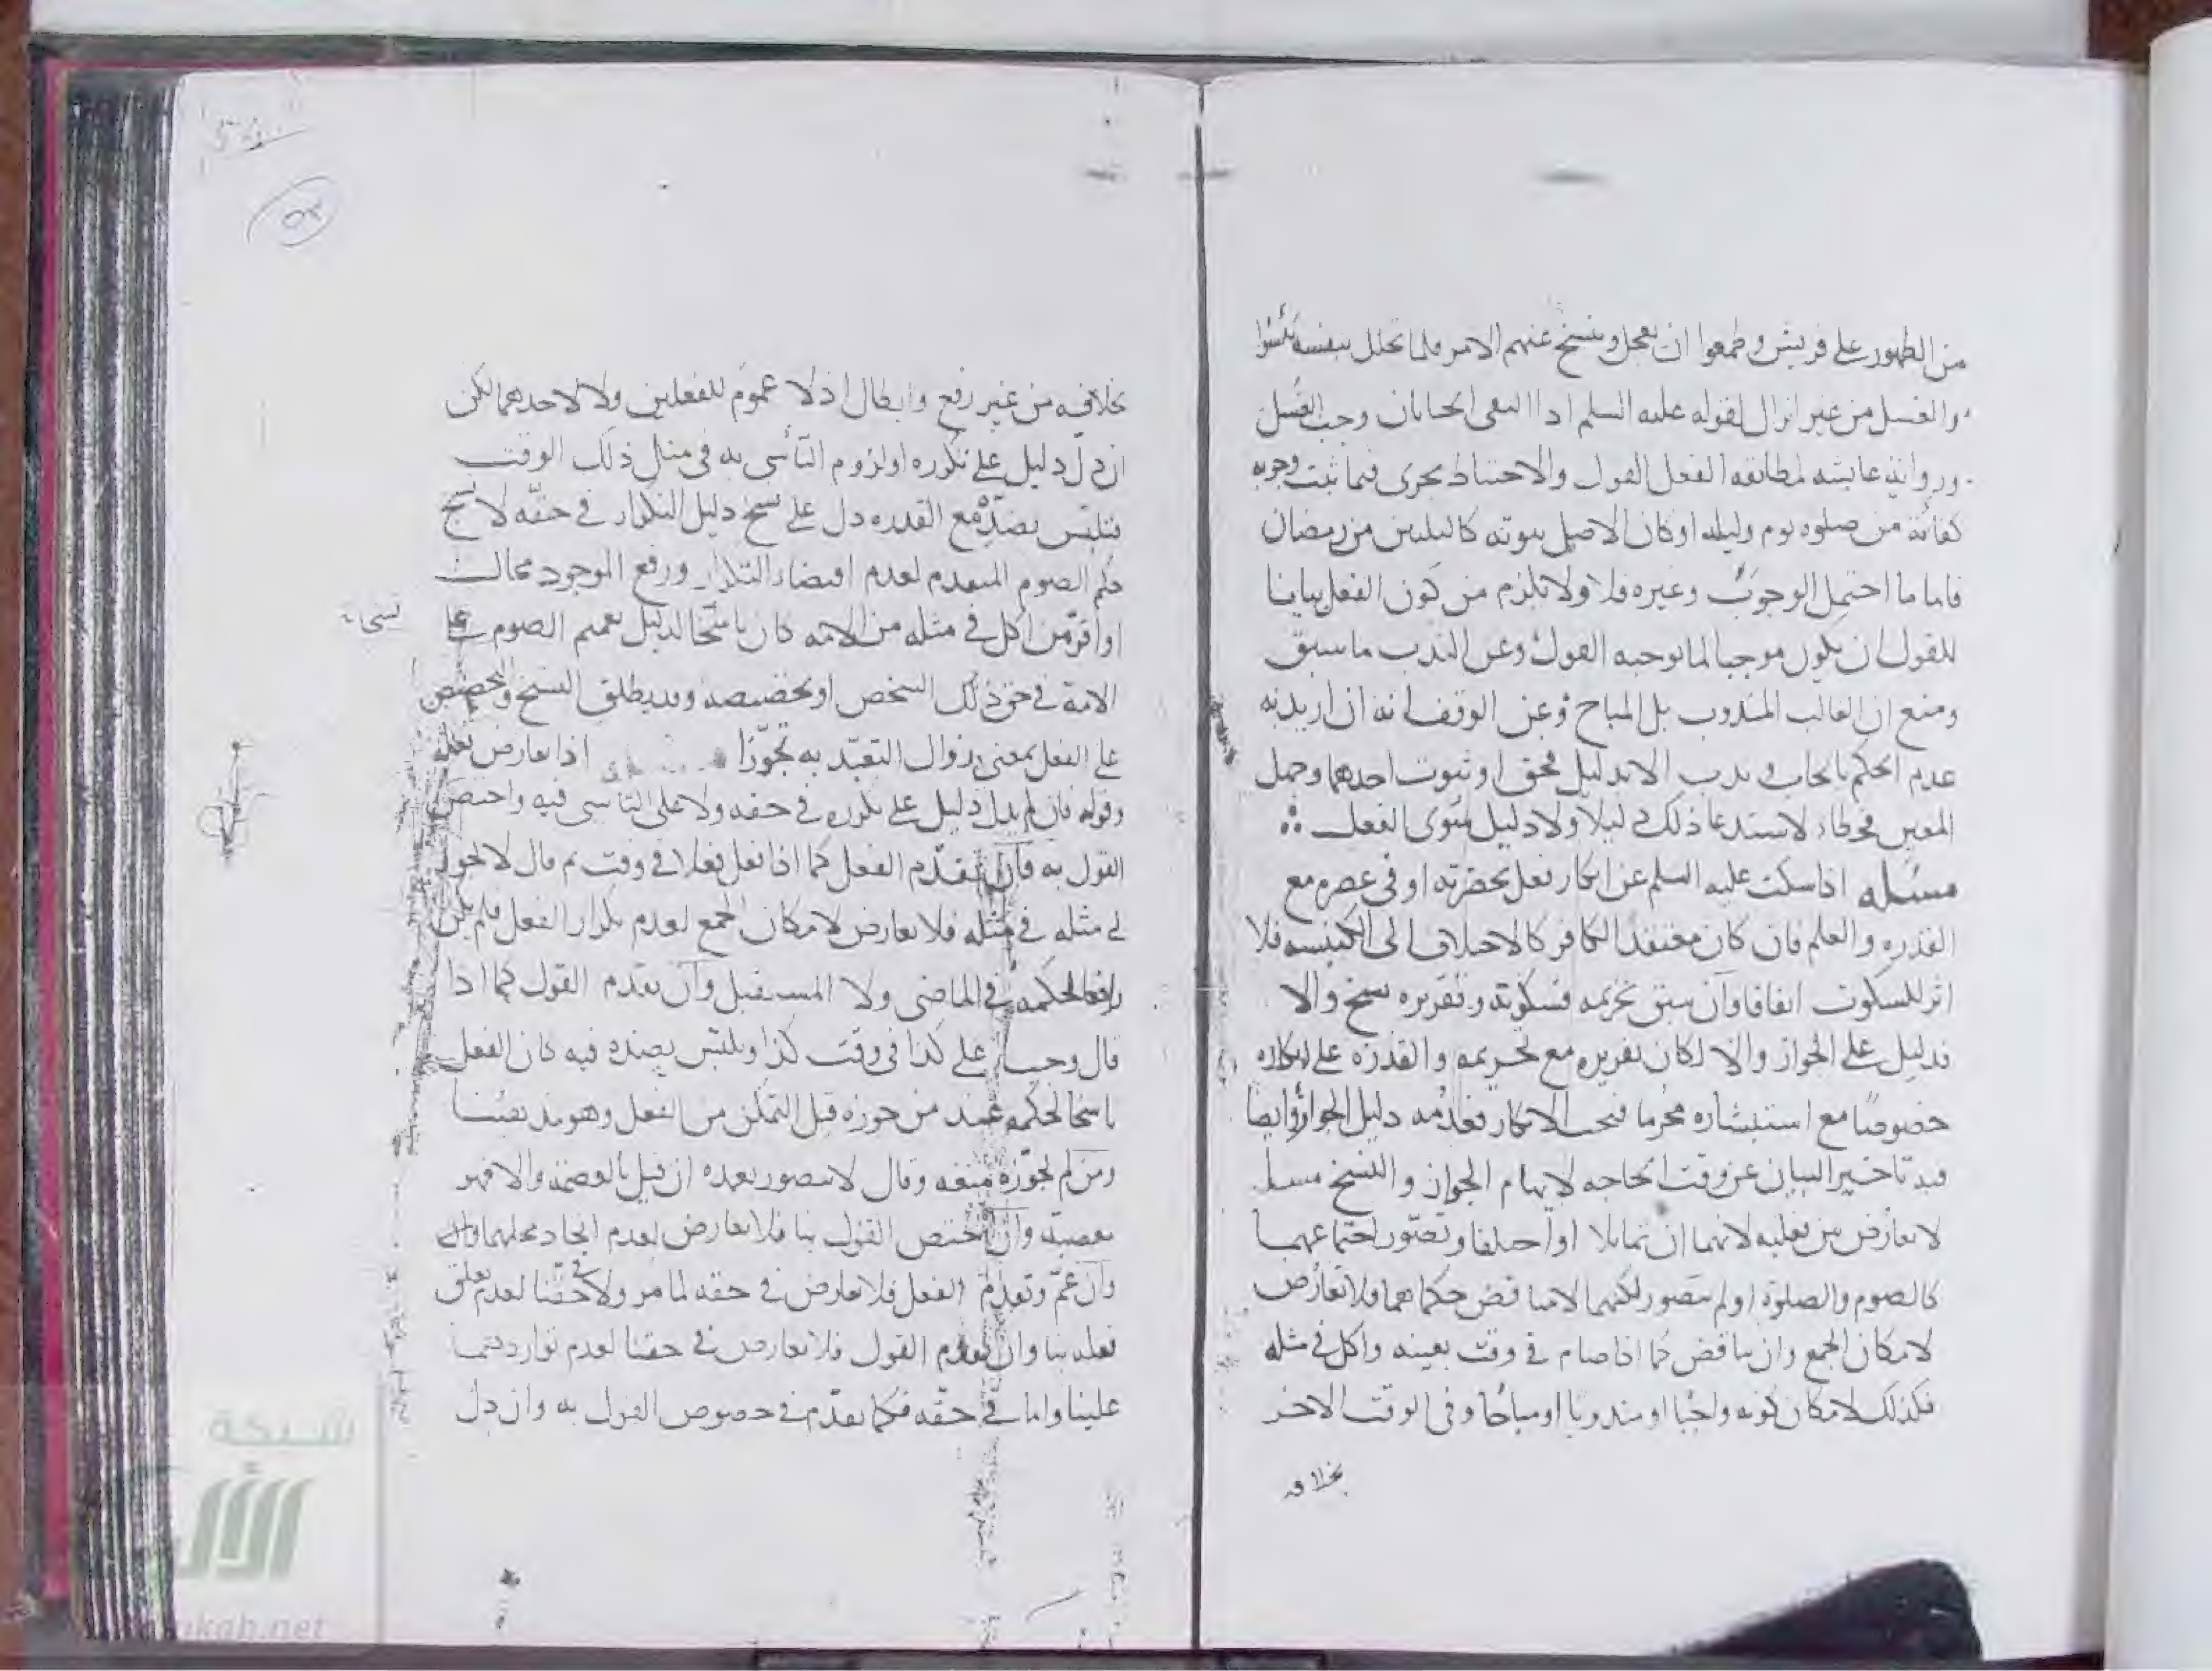 من الظهور على قريش وطمعوا ان يعجل وينسخ عنهم الامر فلما تحلل بنفسه يئسوا
والغسل من غير انزال لقوله عليه السلم اذا التقى الختانان وجب الغسل
ورواية عايشه لمطابقه الفعل القول والاحتياط يجرى فيما ثبت وجوبه
كفائتة من صلوه يوم وليله او كان الاصل ثبوته كالثلثين من رمضان
فاما ما احتمل الوجوب وغيره فلا ولا يلزم من كون الفعل بيانا
للقول ان يكون موجبا لما يوجبه القول وعن الندب ما سبق
ومنع ان الغالب المندوب بل المباح وعن الوقف انه ان اريد به
عدم الحكم بايجاب و ندب الا بدليل فحق او ثبوت احدهما وجهل
المعين فخطاء لاستدعا ذلك دليلا ولا دليل سوى الفعل
مسئله اذا سكت عليه السلم عن انكار فعل بحضرته او في عصره مع
القدره والعلم فان كان معتقدا لكافر كالاختلاف الى الكنيسه فلا
اثر للسكوت اتفاقا وان سبق تحريمه فسكوته وتقريره نسخ والا
فدليل على الجواز والا لكان تقريره مع تحريمه والقدرة على انكاره
خصوصا مع استبشاره محرما فيجب الانكار فعدمه دليل الجواز وايضا
فيه تاخير البيان عن وقت الحاجه لايهام الجواز والنسخ مسئله
لا تعارض بين فعليه لانهما ان تماثلا او اختلفا وتصور اجتماعهما
كالصوم والصلوة او لم يتصور لكنهما لا يتناقض حكماهما فلا تعارض
لامكان الجمع وان تناقض كما اذا صام في وقت بعينه واكل في مثله
فكذلك لامكان كونه واجبا او مندوبا او مباحا وفي الوقت الاخر
بخلافه
٥٢
بخلافه من غير رفع وابطال اذ لا عموم للفعلين ولا لاحدهما لكن
ان دل دليل على تكرره او لزوم التأسي به في مثل ذلك الوقت
فتلبس بضده مع القدره دل على نسخ دليل التكرار في حقه لا نسخ
حكم الصوم المتقدم لعدم اقتضاء التكرار ورفع الموجود محال
او اقر من اكل في مثله من الامه كان ناسخا لدليل تعميم الصوم على
الامة في حق ذلك الشخص او تخصيصه وقد يطلق النسخ والتخصيص
على الفعل بمعنى زوال التعبد به تجوزا اذا تعارض فعله
وقوله فان لم يدل دليل على تكرره في حقه ولا على التأسي فيه واختص
القول به فان تقدم الفعل كما اذا فعل فعلا في وقت ثم قال لا يجوز
لي مثله في مثله فلا تعارض لامكان الجمع لعدم تكرار الفعل فلم يكن
رافعا لحكمه في الماضي ولا المستقبل وان تقدم القول كما اذا
قال وجب على كذا في وقت كذا وتلبس بضده فيه كان الفعل
ناسخا لحكمه عند من جوزه قبل التمكن من الفعل وهو مذهبنا
ومن لم يجوزه منعه وقال لا يتصور تعمده ان قيل بالعصمة والا فهو
معصية وان اختص القول بنا فلا تعارض لعدم اتحاد محلهما
وان عم وتقدم الفعل فلا تعارض في حقه لما مر ولا في حقنا لعدم تعلق
فعله بنا وان تقدم القول فلا تعارض في حقنا لعدم تواردهما
علينا واما في حقه فكما تقدم في خصوص القول به وان دل
شبكة